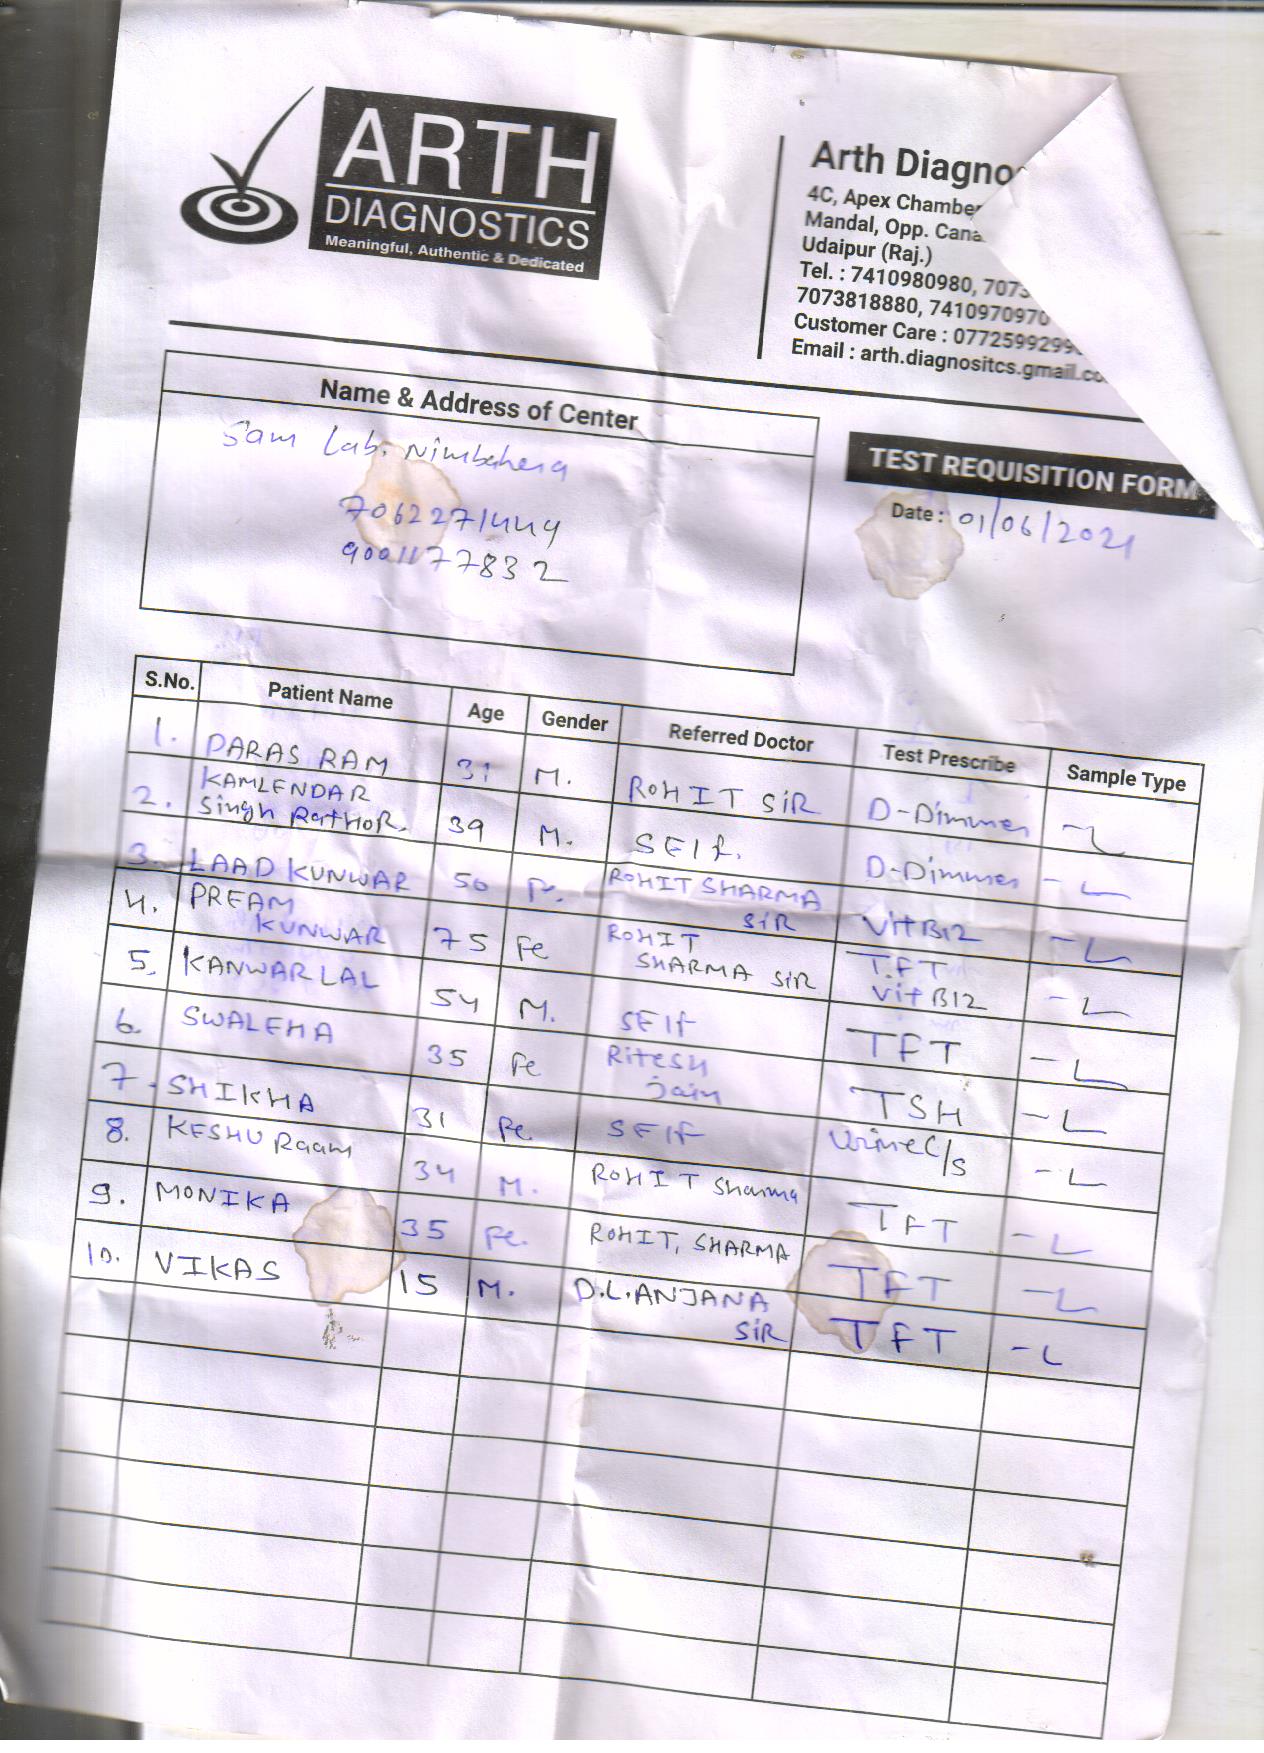 ARTH
DIAGNOSTICS
Meaningful, Authentic & Dedicated
Arth Diagnos
4C, Apex Chamber
Mandal, Opp. Cana
Udaipur (Raj.)
Tel. : 7410980980, 7073
7073818880, 7410970970
Customer Care : 0772599299
Email : arth.diagnositcs.gmail.co
Name & Address of Center
Sam Lab. Nimbahera
7062271449
9001177832
TEST REQUISITION FORM
Date : 01/06/2021
S.No. Patient Name Age Gender Referred Doctor Test Prescribe Sample Type
1. PARAS RAM 31 M. ROHIT SIR D-Dimmer
2. KAMLENDAR
Singh RatHoR. 39 M. SElf. D-Dimmer
3. LAAD KUNWAR 50 Fe. ROHIT SHARMA
SiR Vit B12
4. PREAM
KUNWAR 75 Fe ROHIT
SHARMA SiR T.FT
Vit B12
5. KANWAR LAL 54 M. SElf TFT
6. SWALEHA 35 Fe Ritesh
Jain TSH
7. SHIKHA 31 Fe. SElf Urine C/s
8. KESHU Raam 34 M. ROHIT Sharma TFT
9. MONIKA 35 Fe. ROHIT, SHARMA TFT
10. VIKAS 15 M. D.L.ANJANA
SiR TFT